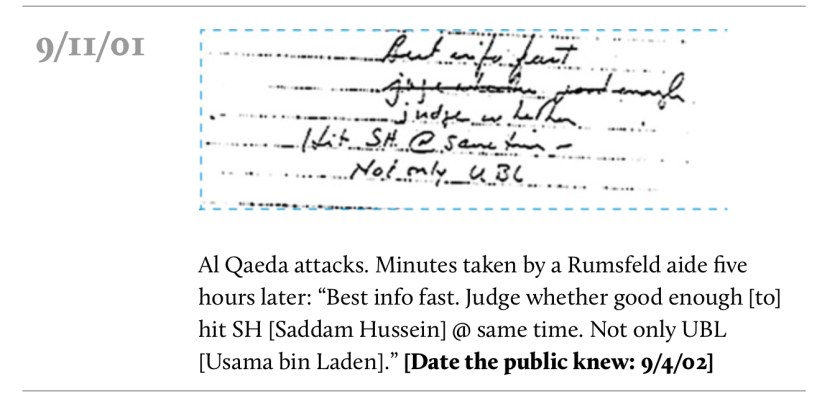 9/11/01
Best info fast
judge whether good enough
judge whether
Hit SH @ same time –
Not only UBL
Al Qaeda attacks. Minutes taken by a Rumsfeld aide five
hours later: “Best info fast. Judge whether good enough [to]
hit SH [Saddam Hussein] @ same time. Not only UBL
[Usama bin Laden].” [Date the public knew: 9/4/02]